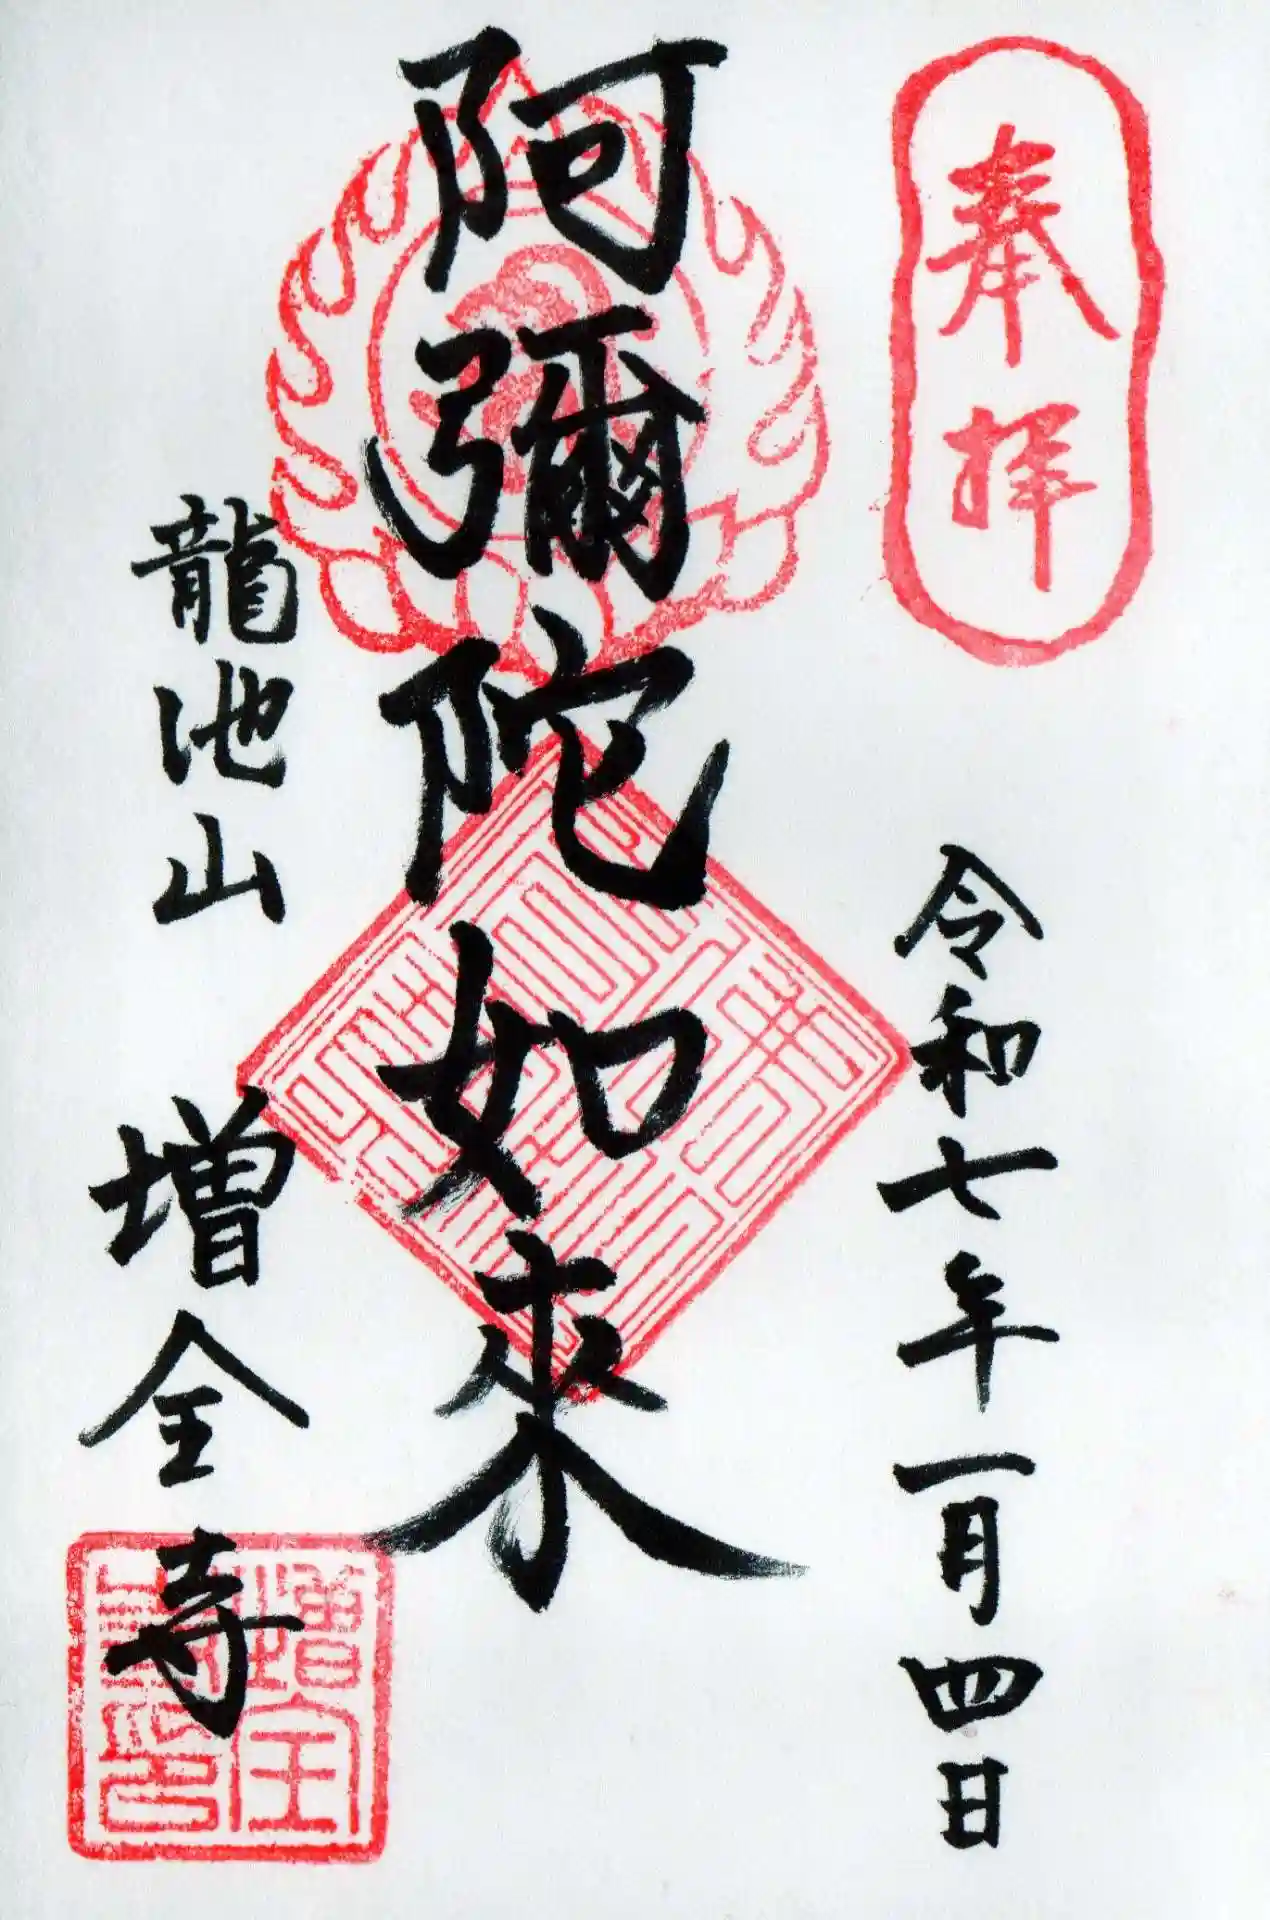 奉拝
令和七年一月四日
阿彌陀如来
龍池山 増全寺
増全寺印